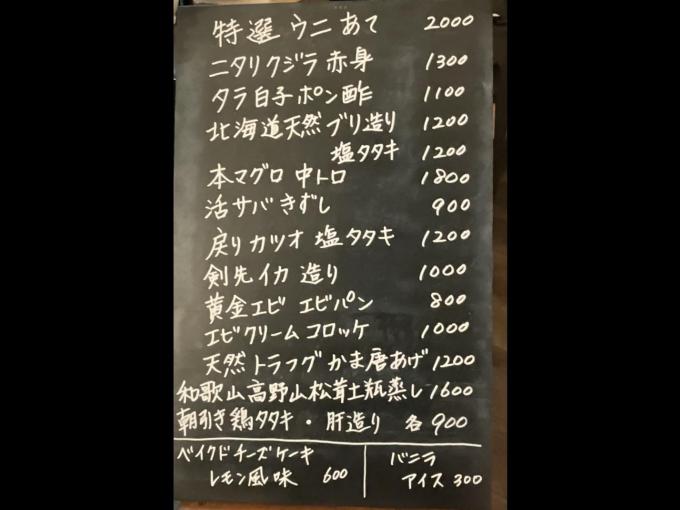 特選 ウニ あて 2000
ニタリクジラ 赤身 1300
タラ白子ポン酢 1100
北海道天然ブリ造り 1200
塩タタキ 1200
本マグロ 中トロ 1800
活サバきずし 900
戻りカツオ 塩タタキ 1200
剣先イカ 造り 1000
黄金エビ エビパン 800
エビクリームコロッケ 1000
天然トラフグかま唐あげ 1200
和歌山高野山松茸土瓶蒸し 1600
朝引き鶏タタキ・肝造り 各900
ベイクドチーズケーキ
レモン風味 600
バニラ
アイス 300